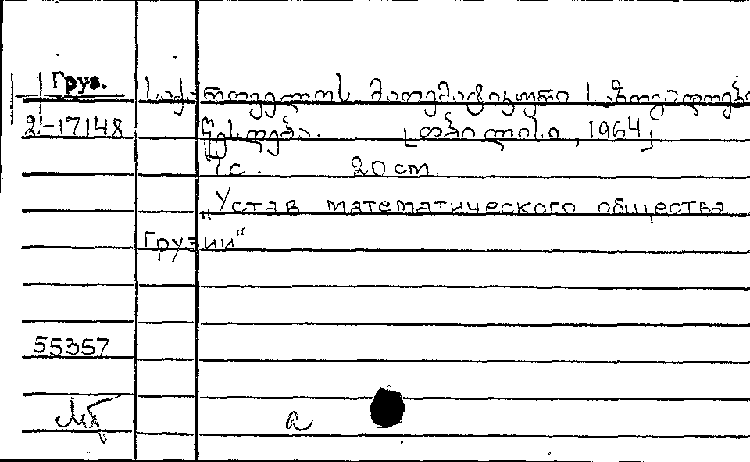 Груз.
საქართველოს მათემატიკური საზოგადოები
2-17148 წესდება. [თბილისი, 1964]
7 с. 20 cm.
„Устав математического общества
Грузии“
55357
а